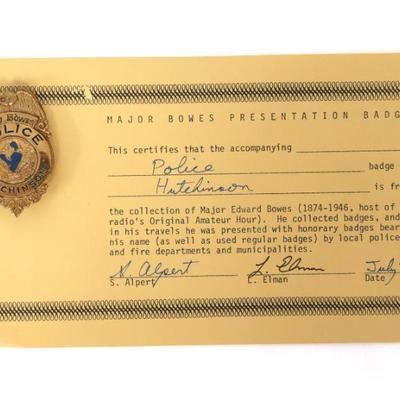 Bowes
POLICE
MAJOR BOWES PRESENTATION BADG
This certifies that the accompanying
Police badge
Hutchinson is fr
the collection of Major Edward Bowes (1874-1946, host of
radio's Original Amateur Hour). He collected badges, and
in his travels he was presented with honorary badges bear
his name (as well as used regular badges) by local police
and fire departments and municipalities.
S. Alpert L. Elman July
S. Alpert L. Elman Date